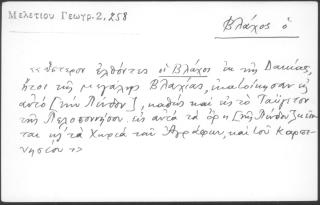 Μελετίου Γεωγρ. 2, 258
Βλάχος ὁ
«ὕστερον ἐλθόντες οἱ Βλάχοι ἐκ τῆς Δακίας,
ἤτοι τῆς μεγάλης Βλαχίας, ἐκατοίκησαν εἰς
αὐτὸ [τὴν Πίνδον], καθὼς καὶ εἰς τὸ Ταΰγετον
τῆς Πελοποννήσου. εἰς αὐτὰ τὰ ὄρη [τῆς Πίνδου] κεῖν
ται εἰς τὰ Χωριὰ τῶν Ἀγράφων, καὶ τοῦ Καρπε-
νησίου»